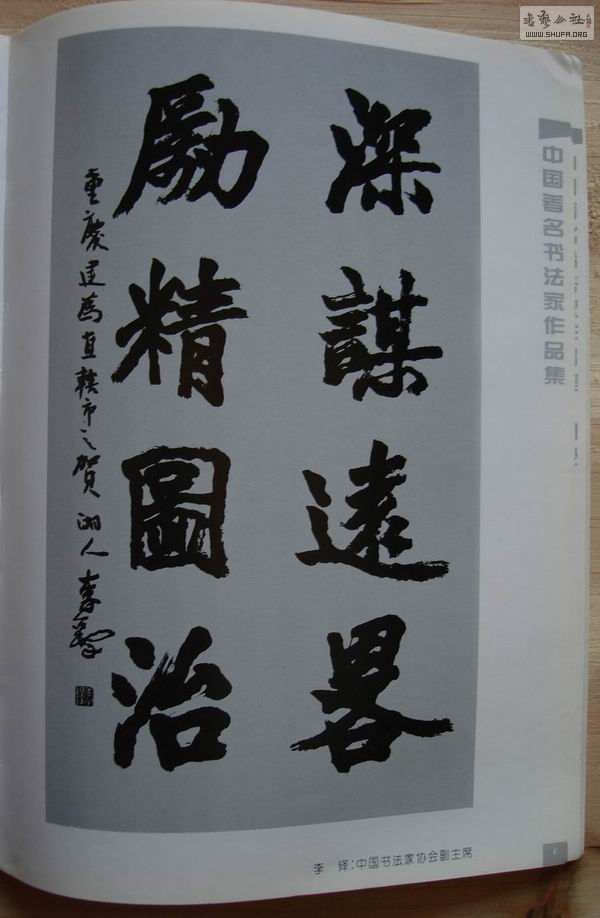 深謀遠畧
勵精圖治
重慶建爲直轄市之賀 湖人李鐸
中国著名书法家作品集
李 铎：中国书法家协会副主席
书艺公社
WWW.SHUFA.ORG